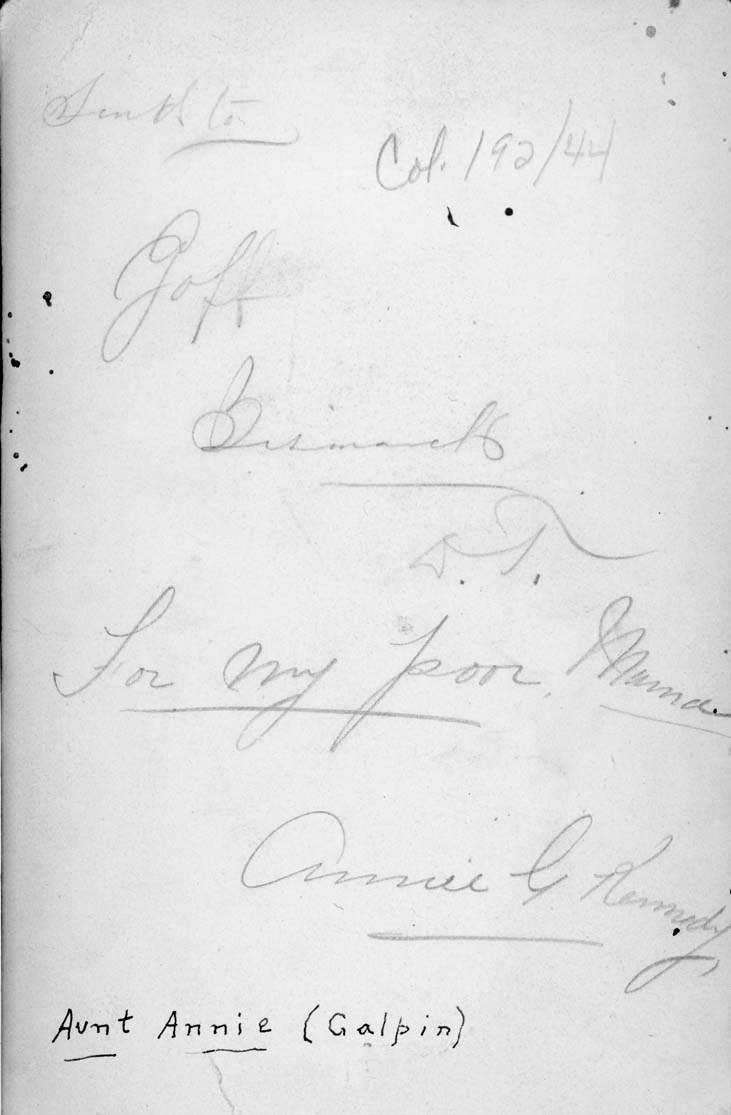 Col. 192/44
Goff
Bismarck
D. T.
For my poor Mama.
Annie G Kennedy,
Aunt Annie (Galpin)